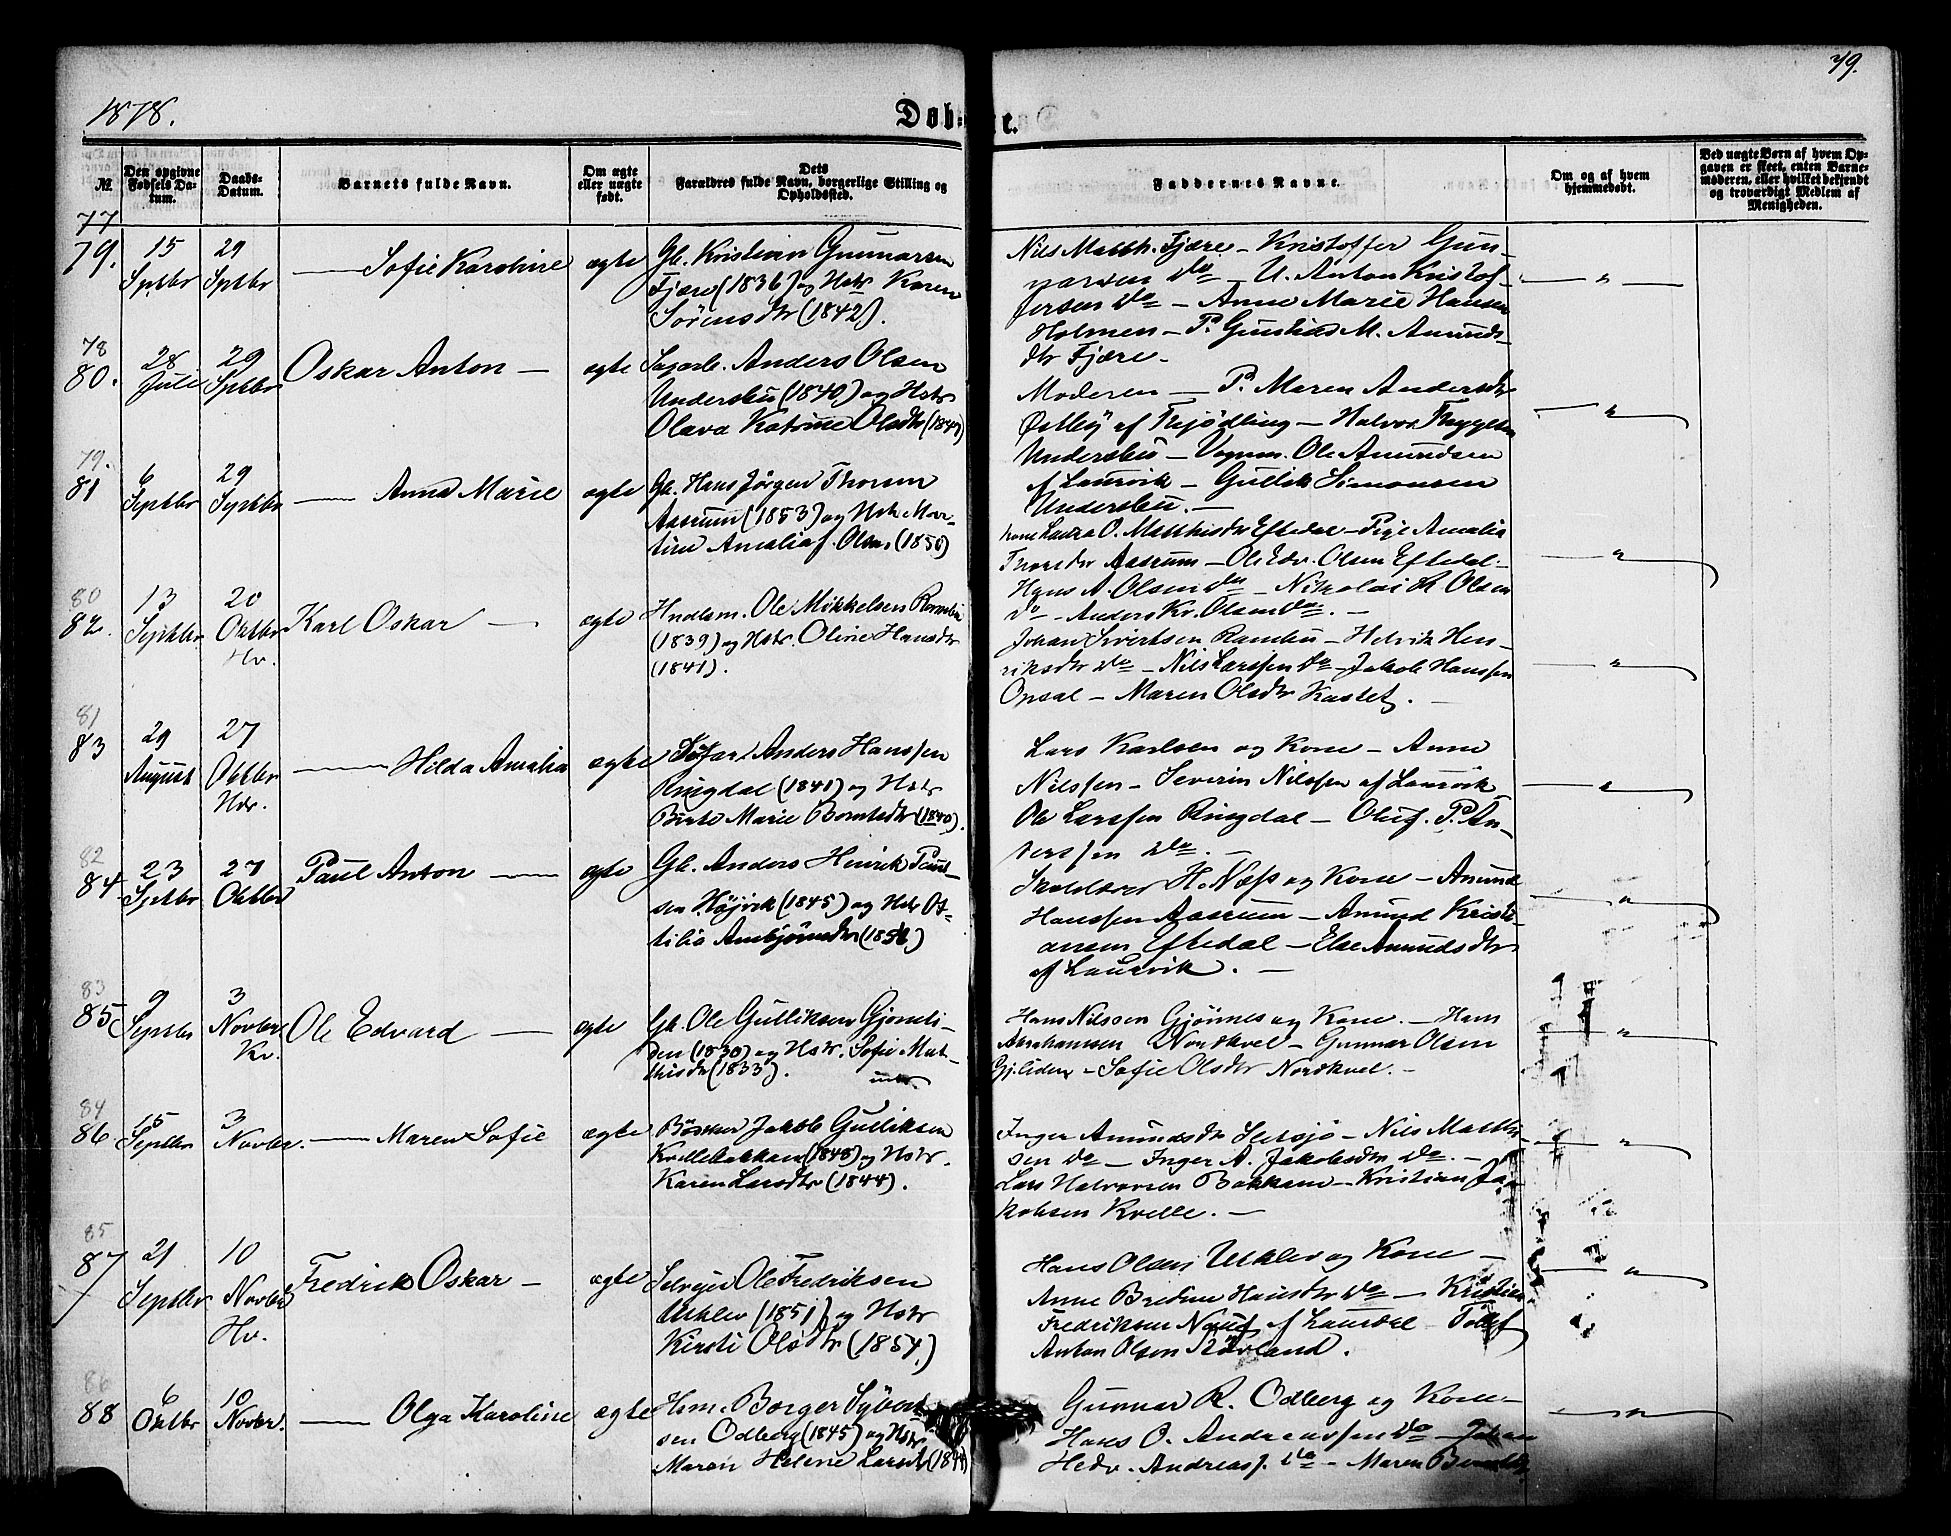 1878.
Døbte.
79.
№
Den opgivne Fødsels Datum.
Daabs-Datum.
Barnets fulde Navn.
Om ægte eller uægte født.
Dets Forældres fulde Navn, borgerlige Stilling og Opholdssted.
Faddernes Navne.
Om og af hvem hjemmedøbt.
Ved uægte Børn af hvem Opgaven er skeet, enten Barnemoderen, eller hvilket bekjendt og troværdigt Medlem af Menigheden.
77
79.
15 Septbr
29 Septbr
Sofie Karoline
ægte
Gb. Kristian Gunnarsen
Fjære (1836) og Hstr Karen
Sörensdtr (1842).
Nils Matth. Fjære – Kristoffer Gun-
narsen do – U. Anton Kristof-
fersen do – Anne Marie Hansen
Holmen – P. M. Amunds-
dtr Fjære –
"
78
80.
28 Juli
29 Septbr
Oskar Anton –
ægte
Anders Olsen
Undersbu (1840) og Hstr
Olava Katrine Olsdtr
Moderen – P. Maren Andersdtr
Østby af Tjødling – Halvor
Undersbu – Ole Amundsen
af Laurvik – Gullik Simonsen
Undersbu. –
"
79.
81
6 Septbr
29 Septbr
Anna Marie
ægte
Gb. Hans Jörgen Thorsen
Aasrum (1853) og Hstr Mar-
tine Amalia f. Olsen (1850)
Kone Laura O. Matthisdtr Eftedal – Pige Amalia
Thorsdtr Aasrum – Ole Edv. Olsen Eftedal –
Hans A. Olsen do – Nikolai Olsen
do – Anders Kr. Olsen do. –
"
80
82.
13 Septbr
20 Oktbr
Hv.
Karl Oskar –
ægte
Ole Mikkelsen
(1839) og Hstr. Oline Hansdtr
(1841).
Johan Sivertsen Rambu – Helvik Hen-
riksdtr do – Nils Larssen do – Jakob Hanssen
Opsal – Maren Olsdtr Kastet. –
"
81
83
29 August
27 Oktbr
Hdr.
Hilda Amalia
ægte
Anders Hanssen
Ringdal (1841) og Hstr
Birte Marie Berntsdtr (1840).
Lars Karlsen og Kone – Anne
Nilssen – Severin Nilssen af Laurvik
Ole Larssen Ringdal – Oluf. P. An-
derssen do. –
"
82
84
23 Septbr
27 Oktbr
Paul Anton –
ægte
Gb. Anders Hinrik Paul-
sen Höjvik (1845) og Hstr Ot-
tilia Ambjörnsdtr
Skolelærer H. Næss og Kone – Amund
Hanssen Aasrum – Amund Kristi-
ansen Eftedal – Else Amundsdtr
af Laurvik. –
"
83
85
9 Septbr
3 Novbr
Kv.
Ole Edvard –
ægte
Gb. Ole Gulliksen Gjönli-
den (1830) og Hstr. Sofie Mat-
thisdtr (1833).
Hans Nilssen Gjönnes og Kone. – Hans
Abrahamsen Nordkvel – Gunnar Olsen
Gj.liden – Sofie Olsdtr Nordkvel. –
"
84
86.
15 Septbr
3 Novbr.
Maren Sofie
ægte
Bödker Jakob Gulliksen
Kvellebakken (1848) og Hstr.
Karen Larsdtr (1844).
Inger Amundsdtr – Nils Matthi-
sen do – Inger A. Jakobsdtr do. –
Lars Halvorsen Bakkene – Kristian Ja-
kobsen Kvelle. –
"
85
87
21 Septbr
10 Novbr
Hv.
Fredrik Oskar –
ægte
Selvejer Ole Fredriksen
Utklev (1851) og Hstr
Kirsti Olsdtr (1854.)
Hans Olsen Utklev og Kone –
Anne Bredine Hansdtr do – Kristian
Fredriksen af Laurdal – Tollef
Anton Olsen
"
86
88
6 Oktbr
10 Novbr.
Olga Karoline
ægte
Hsm. Borger
sen Odberg (1845) og Hstr
Maren Helene Larsdtr
Gunnar R. Odberg og Kone –
Hans O. Andreassen do – Johan
Hedv. Andreasf. do – Maren
"